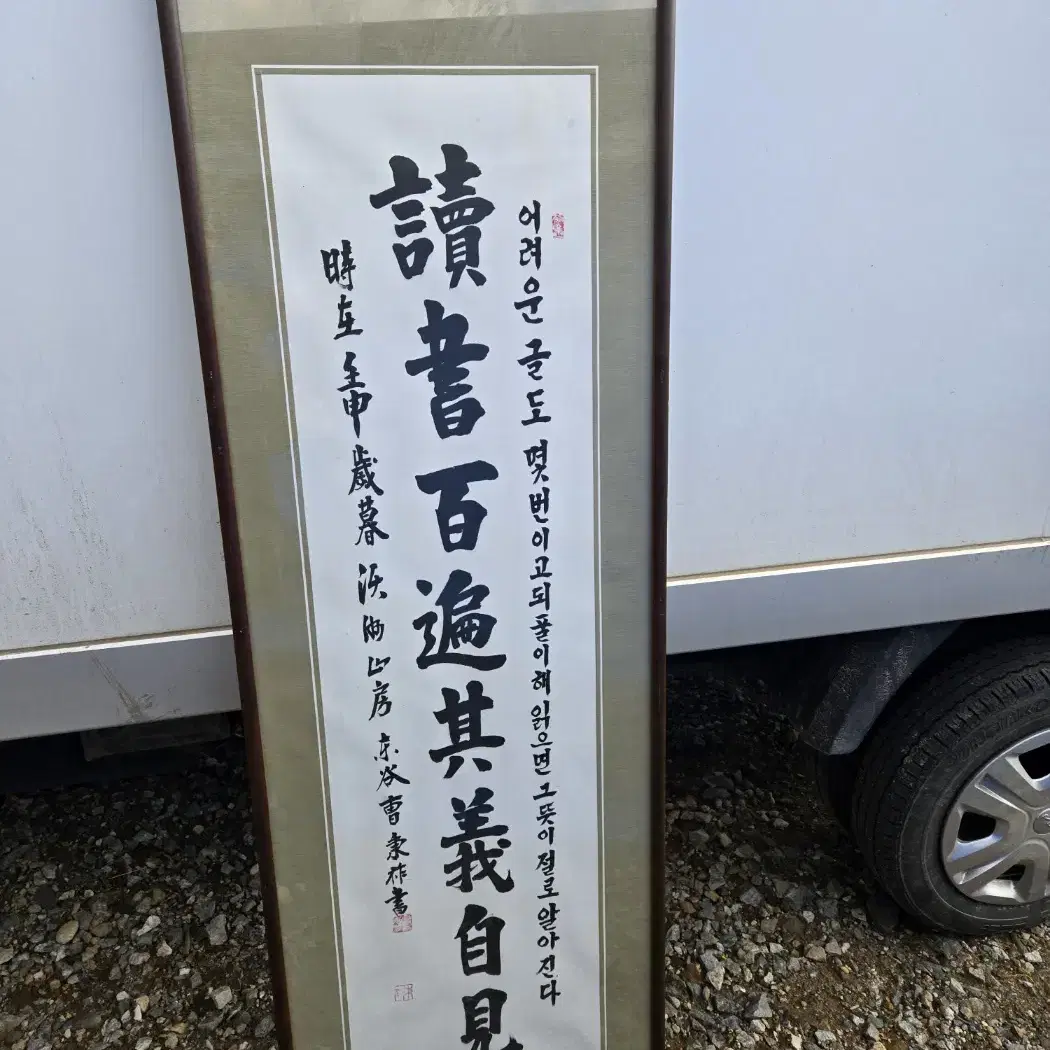 어려운 글도 몇번이고 되풀이해 읽으면 그 뜻이 절로 알아진다
讀書百遍其義自見
時在壬申歲暮 房 東谷曺秉祚書